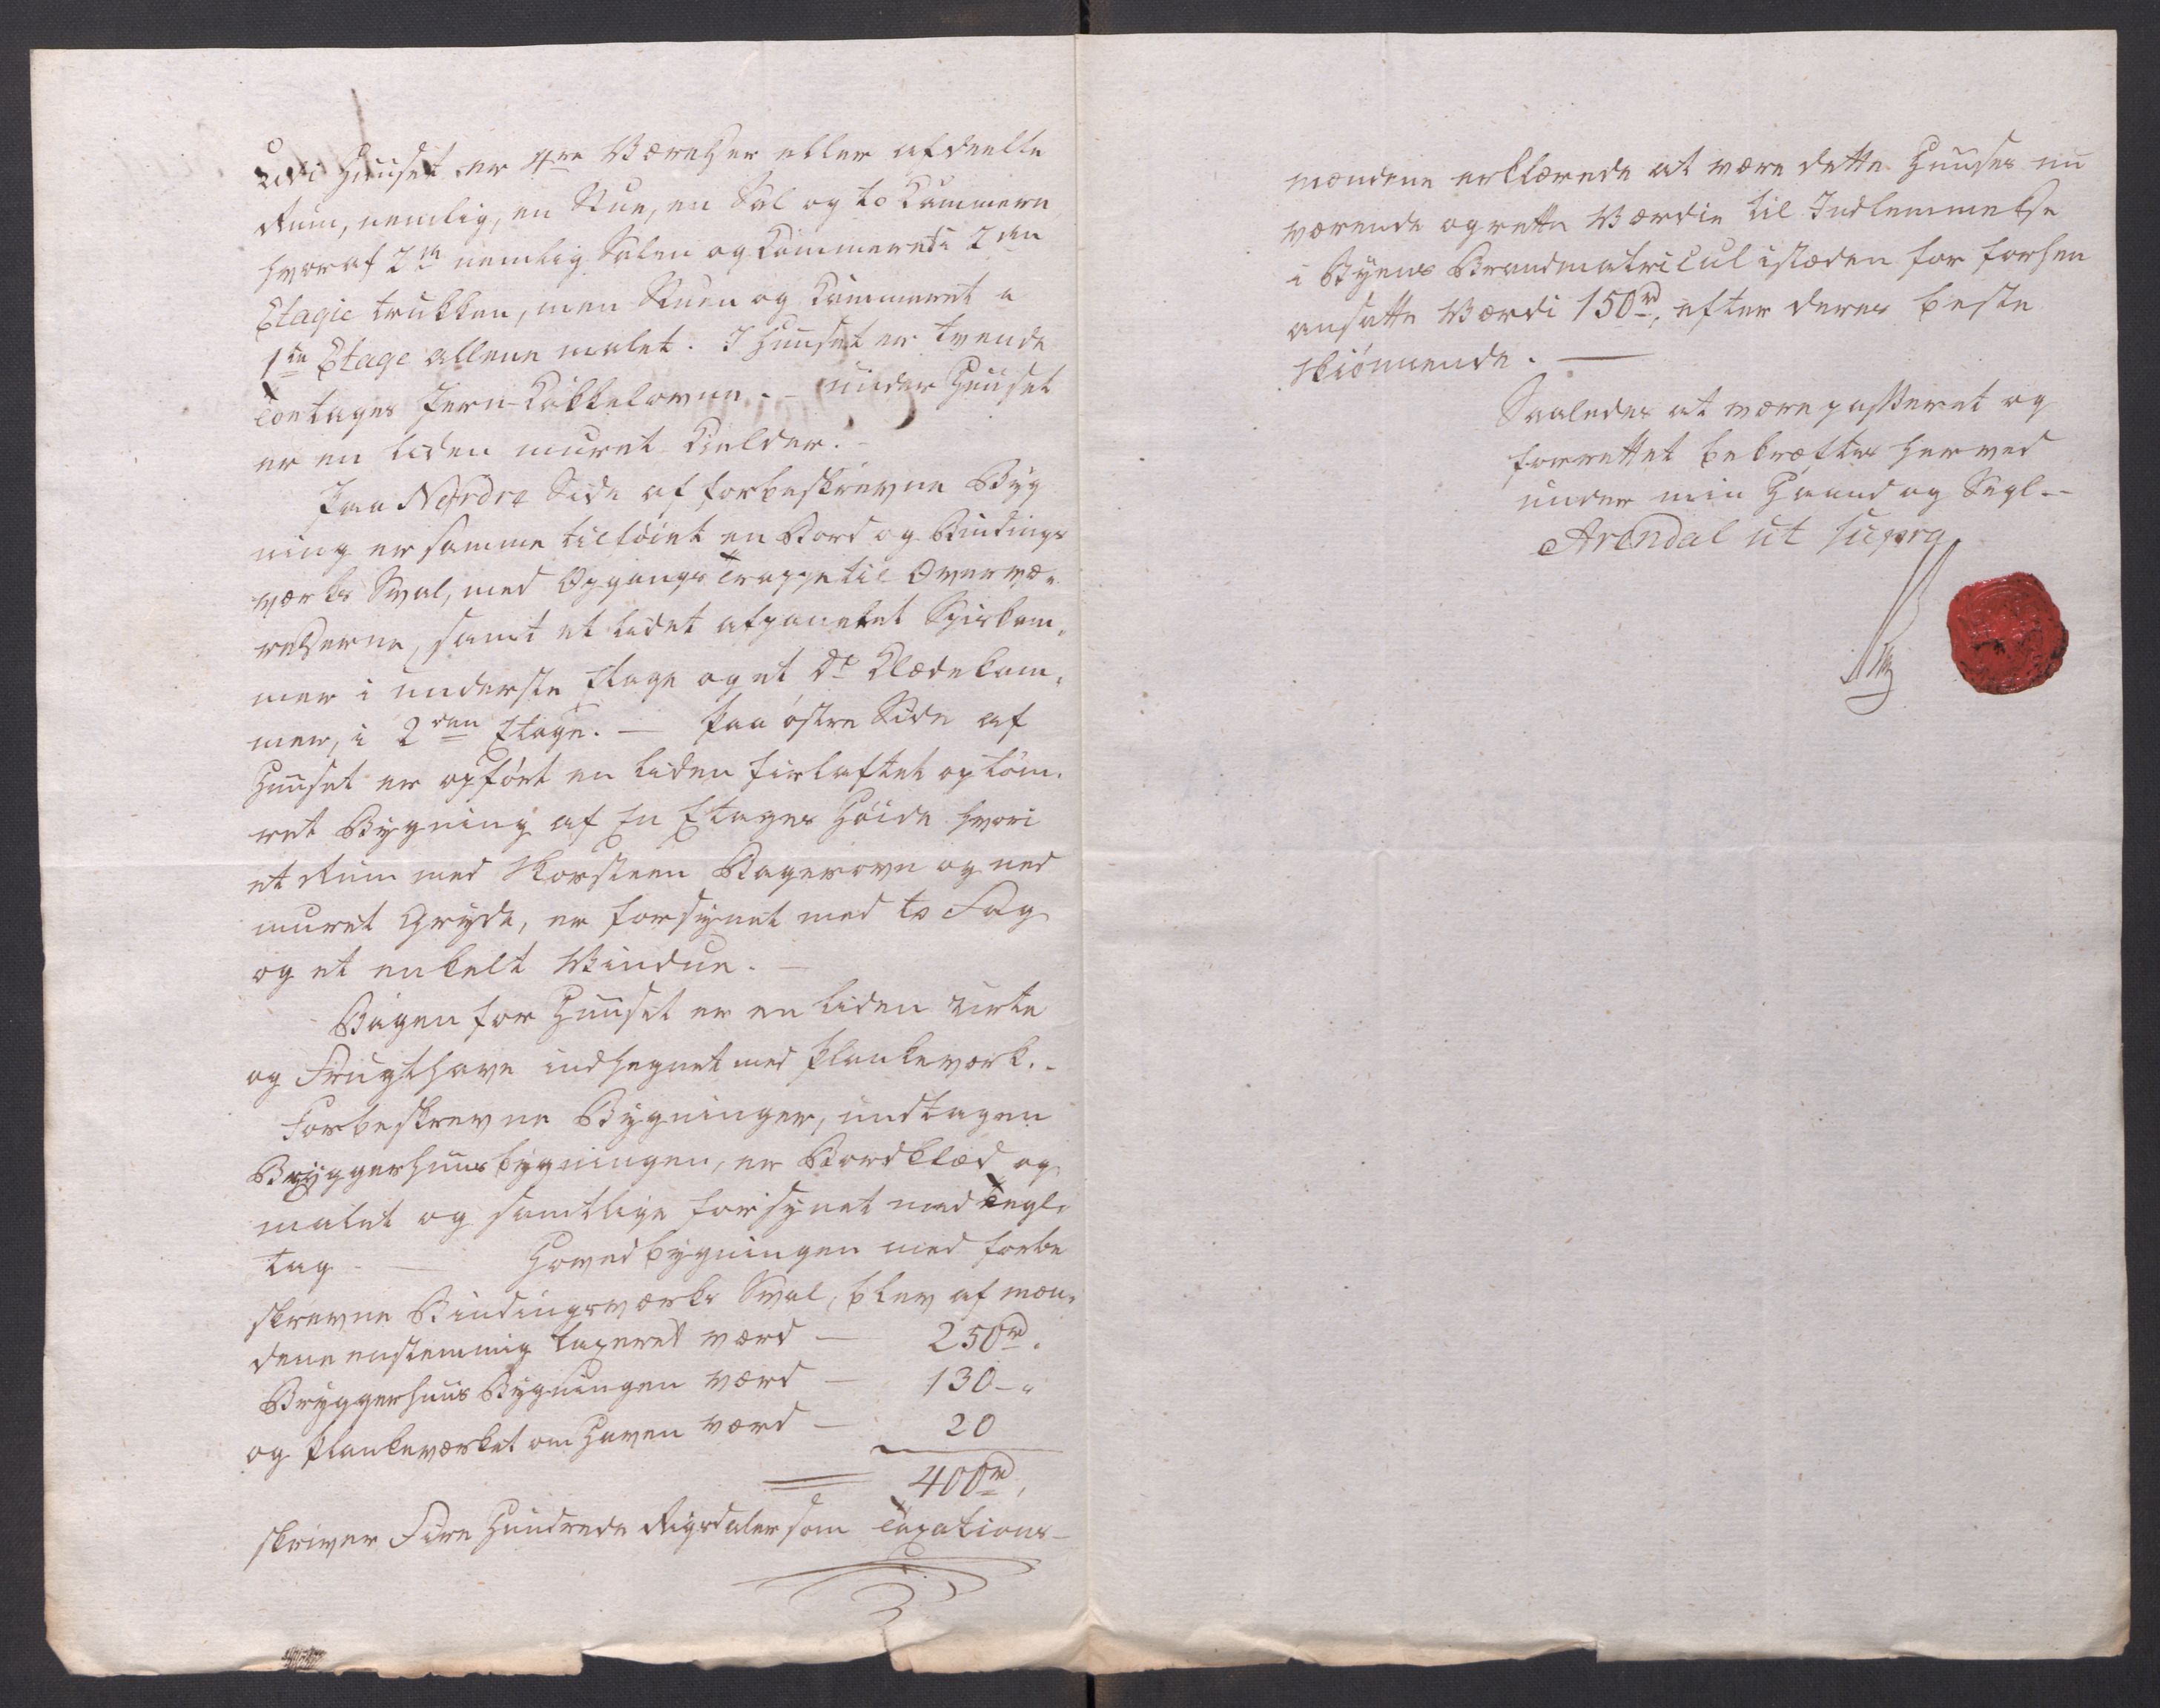 Udi Huuset er 4re Værelser eller afdeelte
Rum, nemlig, en Stue, en Sal og to Kammere
hvoraf 2de nemlig Salen og Kammeret i 2den
Etagie trukken, men Stuen og Kammeret i
1ste Etage allene malet. I Huuset er tvende
toetages Jern-Kakkelovne. - under Huuset
er en liden muret Kielder. -
Paa Nordre Side af forbeskrevne Byg
ning er samme tilføiet en Bord og Bindings
værks Sval, med Opgangs Trappe til Overvæ-
relserne, samt et lidet afpanelet Spiskam-
mer i underste Etage og et Do Klædekam-
mer, i 2den Etage. — Paa østre Side af
Huuset er opført en liden firlaftet optøm-
ret Bygning af En Etages Høide hvori
et Rum med Skorsteen Bagerovn og ned
muret Gryde, er forsynet med to Fag
og et enkelt Vindue. —
Bagen for Huuset er en liden Urte
og Frugthave indhegnet med Plankeværk. -
Forbeskrevne Bygninger, undtagen
Bryggerhuusbygningen, er Bordklæd og
malet og samtlige forsynet med Tegl-
tag - — Hovedbygningen med forbe
skrevne Bindingsværks Sval, blev af mæn-
dene enstemmig taxeret værd — 250rd.
Bryggerhuus Bygningen værd — 130 - "
og Plankeværket om Haven værd — 20
400rd,
skriver Fire Hundrede Rigsdaler som Taxations-
mændene erklærede at være dette Huuses nu
værende og rette Værdie til Indlemmelse
i Byens Brandmatricul istæden for forhen
ansatte Værdi 150rd, efter deres beste
Skiønnende. —
Saaledes at være passeret og
forrettet bekræftes herved
under min Haand og Segl. -
Arendal ut supra